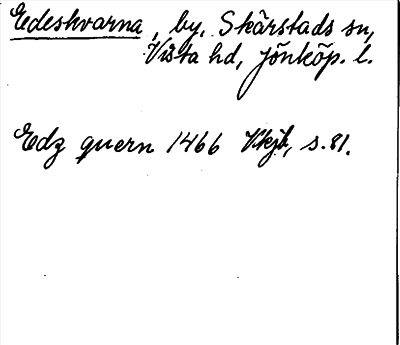 Edeskvarna, by, Skärstads sn,
Vista hd, Jönköp. l.
Edz quern 1466 Vkjb, s. 81.